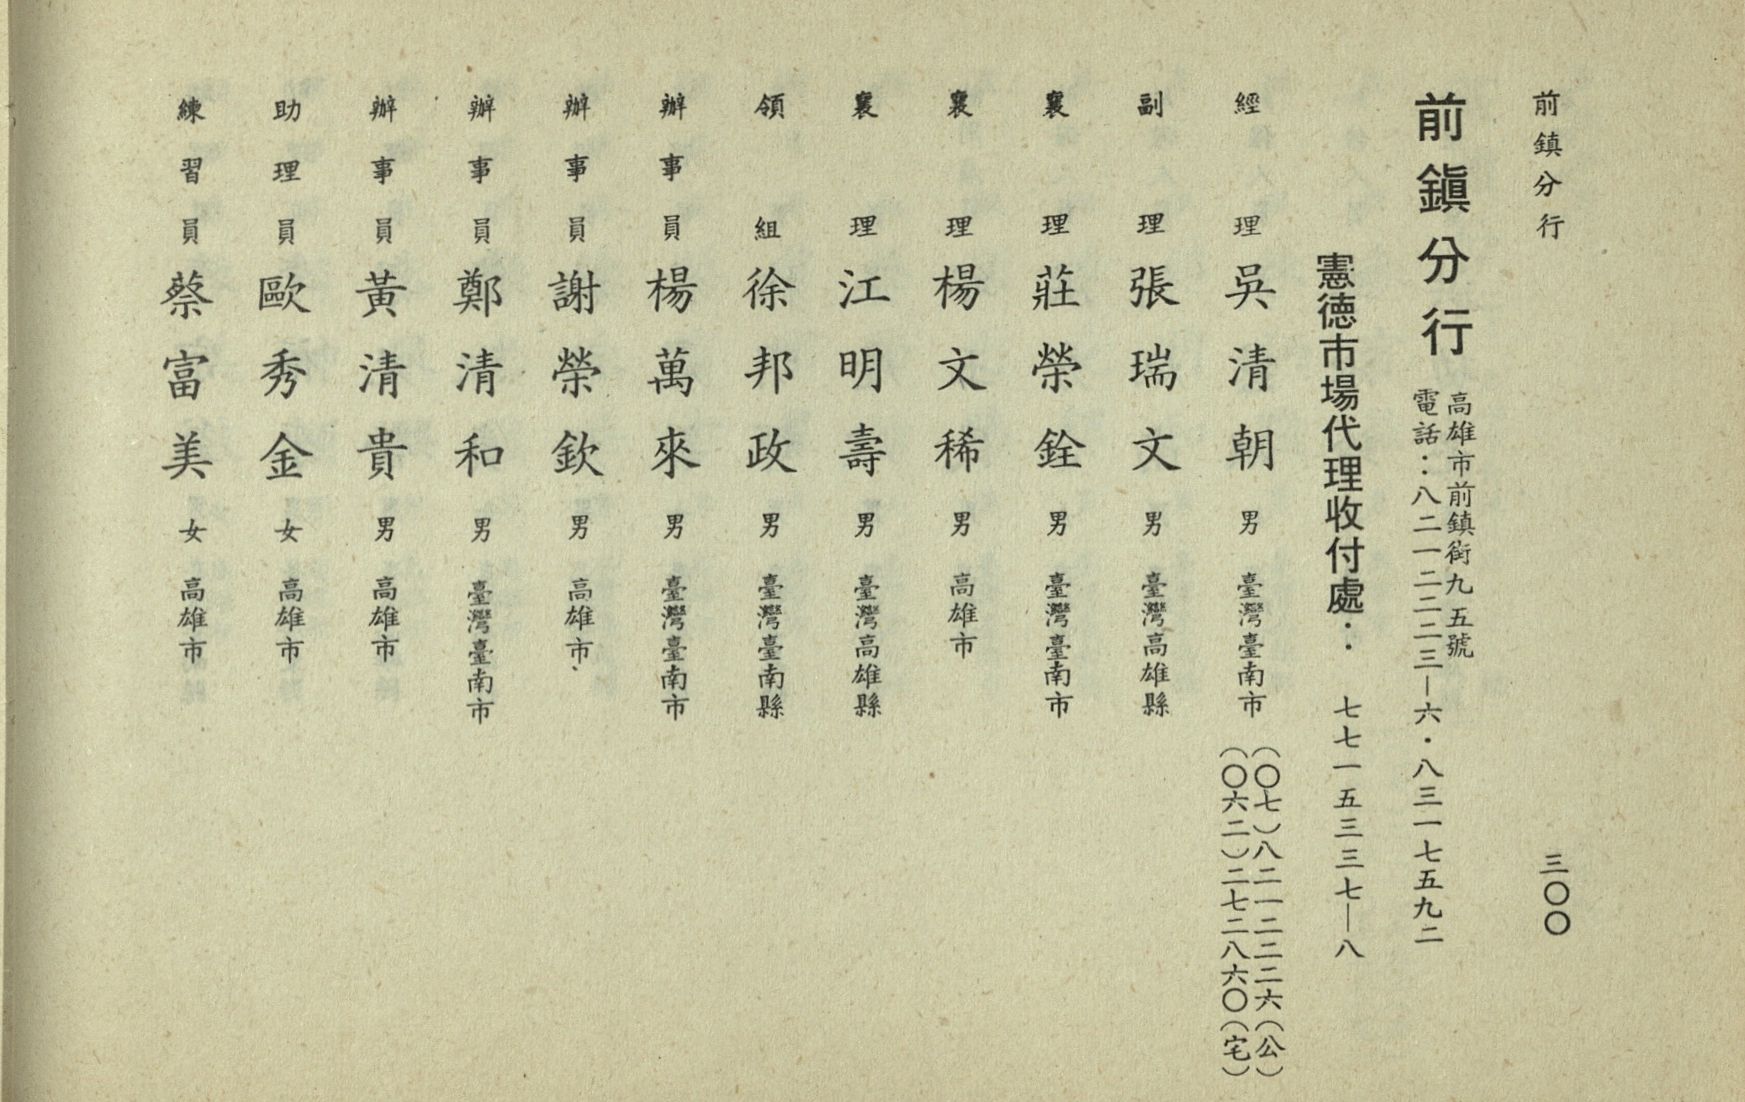 前鎮分行
三〇〇
前鎭分行
高雄市前鎮街九五號
電話：八二一二二二三—六・八三一七五九二
憲德市場代理收付處：七七一五三三七—八
經理 吳清朝 男 臺灣臺南市
(〇七)八二一二二二六(公)
(〇六二)二七二八六〇(宅)
副理 張瑞文 男 臺灣高雄縣
襄理 莊榮銓 男 臺灣臺南市
襄理 楊文稀 男 高雄市
襄理 江明壽 男 臺灣高雄縣
領組 徐邦政 男 臺灣臺南縣
辦事員 楊萬來 男 臺灣臺南市
辦事員 謝榮欽 男 高雄市
辦事員 鄭清和 男 臺灣臺南市
辦事員 黃清貴 男 高雄市
助理員 歐秀金 女 高雄市
練習員 蔡富美 女 高雄市